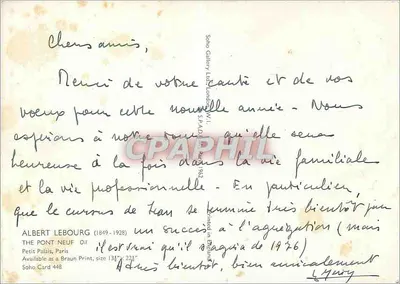 Chers amis,
Merci de votre carte et de vos
voeux pour cette nouvelle année - Nous
espérons à notre tour qu'elle sera
heureuse à la fois dans la vie familiale
et la vie professionnelle - En particulier,
que le cursus de Jean se termine très bientôt par
un succès à l'agrégation (mais
il est vrai qu'il s'agira de 1976)
A très bientôt, bien amicalement
ALBERT LEBOURG (1849-1928)
THE PONT NEUF Oil
Petit Palais, Paris
Available as a Braun Print, size 13" x 22¾"
Soho Card 448
Soho Gallery Ltd, London W.1.
S.P.A.D.E.M. Paris 1962
Printed in England
CPARPHIL